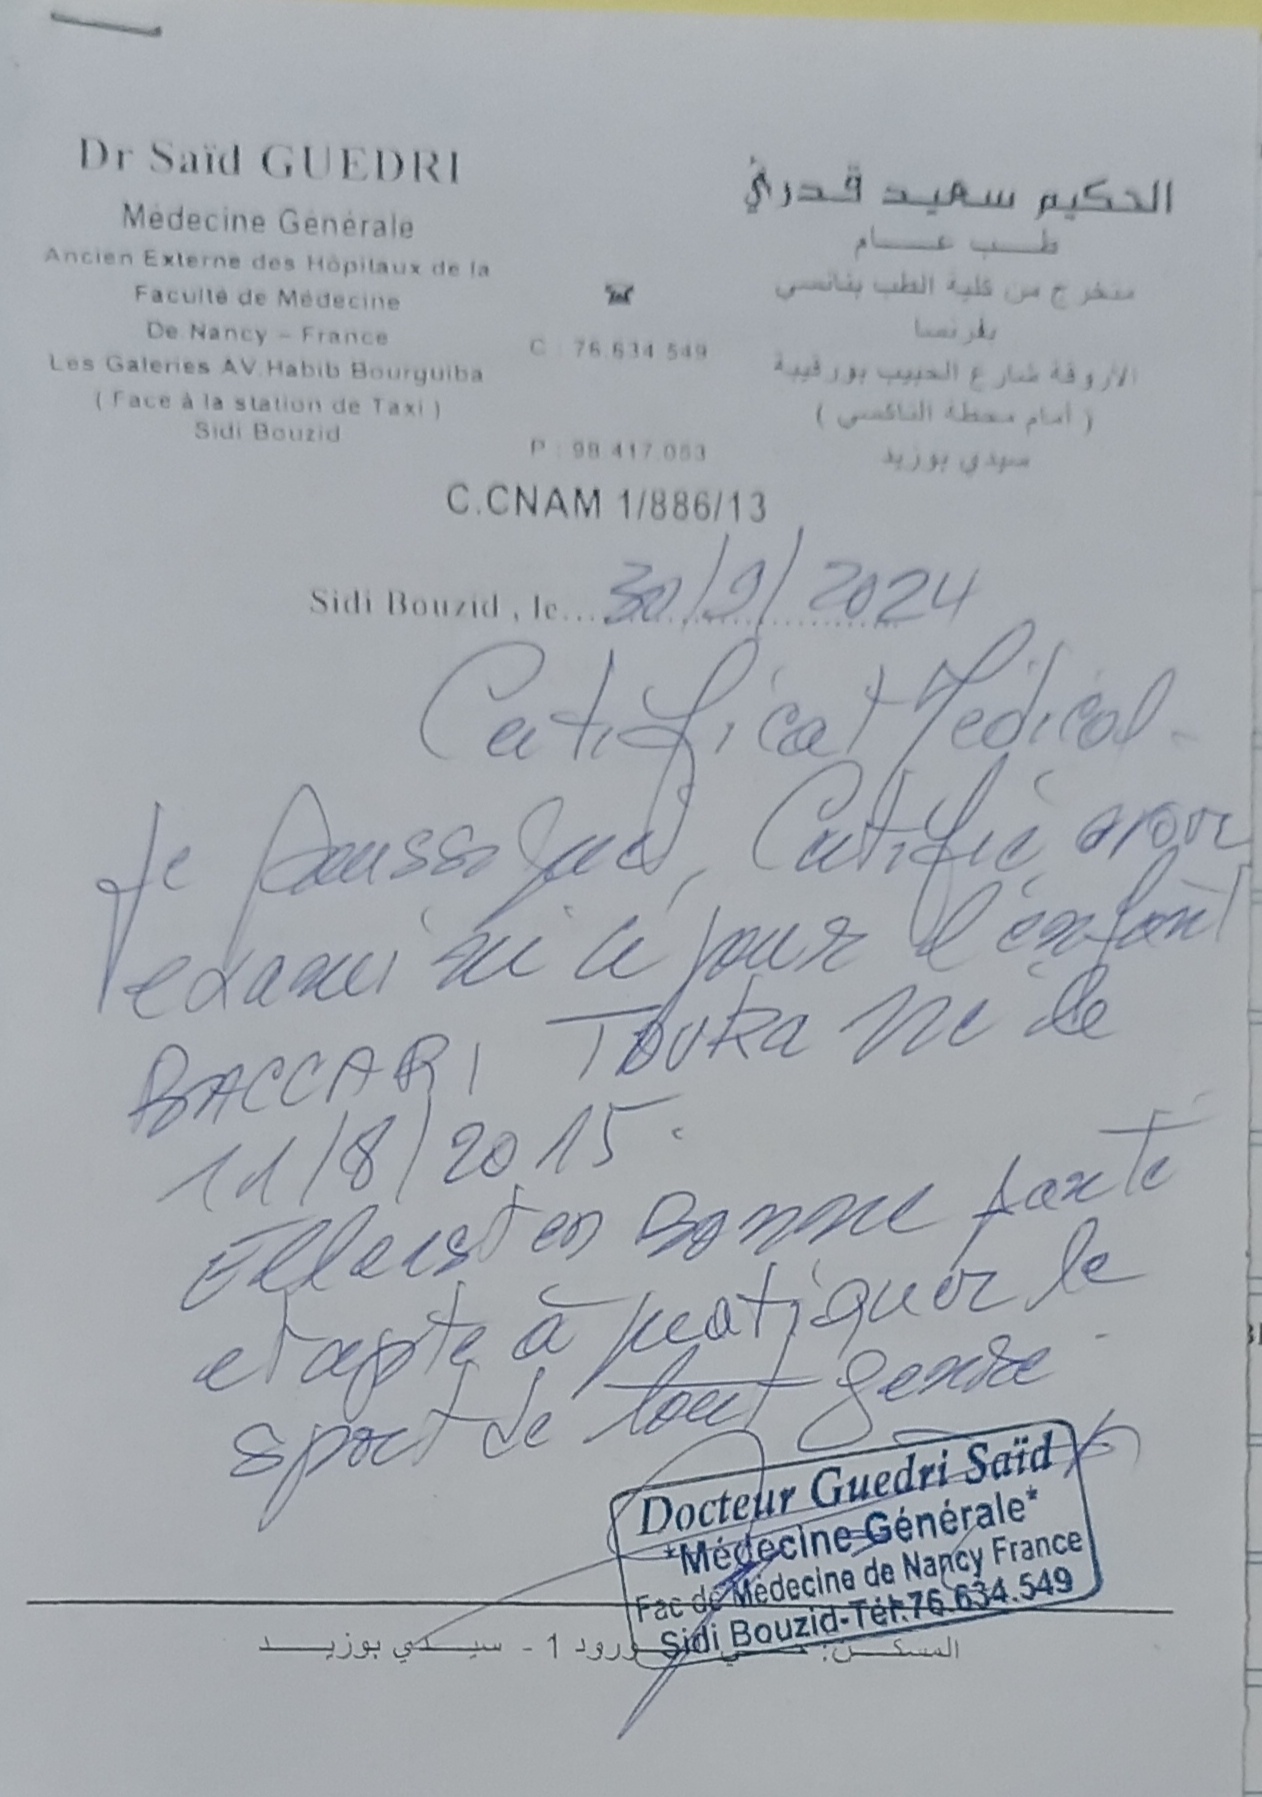 Dr Saïd GUEDRI
Médecine Générale
Ancien Externe des Hôpitaux de la
Faculté de Médecine
De Nancy – France
Les Galeries AV.Habib Bourguiba
( Face à la station de Taxi )
Sidi Bouzid
الحكيم سعيد قدري
طب عام
متخرج من كلية الطب بنانسي
بفرنسا
الأروقة شارع الحبيب بورقيبة
( أمام محطة التاكسي )
سيدي بوزيد
C : 76.634.549
P : 98.417.063
C.CNAM 1/886/13
Sidi Bouzid , le... 30/9/2024
Certificat Médical
Je soussigné, Certifie avoir
examiné ce jour l'enfant
BACCARI Touka né le
11/8/2015.
Elle est en Bonne santé
et apte à pratiquer le
sport de tout genre.
Docteur Guedri Saïd
*Médecine Générale*
Fac de Médecine de Nancy France
Sidi Bouzid-Tél:76.634.549
المسكن: حي الورود 1 - سيدي بوزيد